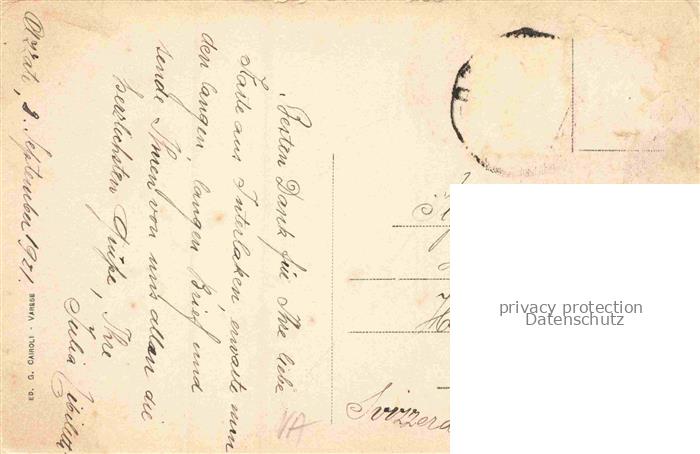 Azzate, 2. September 1921.
Besten Dank für Ihre liebe
Karte aus Interlaken, erwarte nun
den langen, langen Brief und
sende Ihnen von uns allen die
herzlichsten Grüße, Ihre
Julia
ED. G. CAIROLI - VARESE
VA
Svizzera
privacy protection
Datenschutz